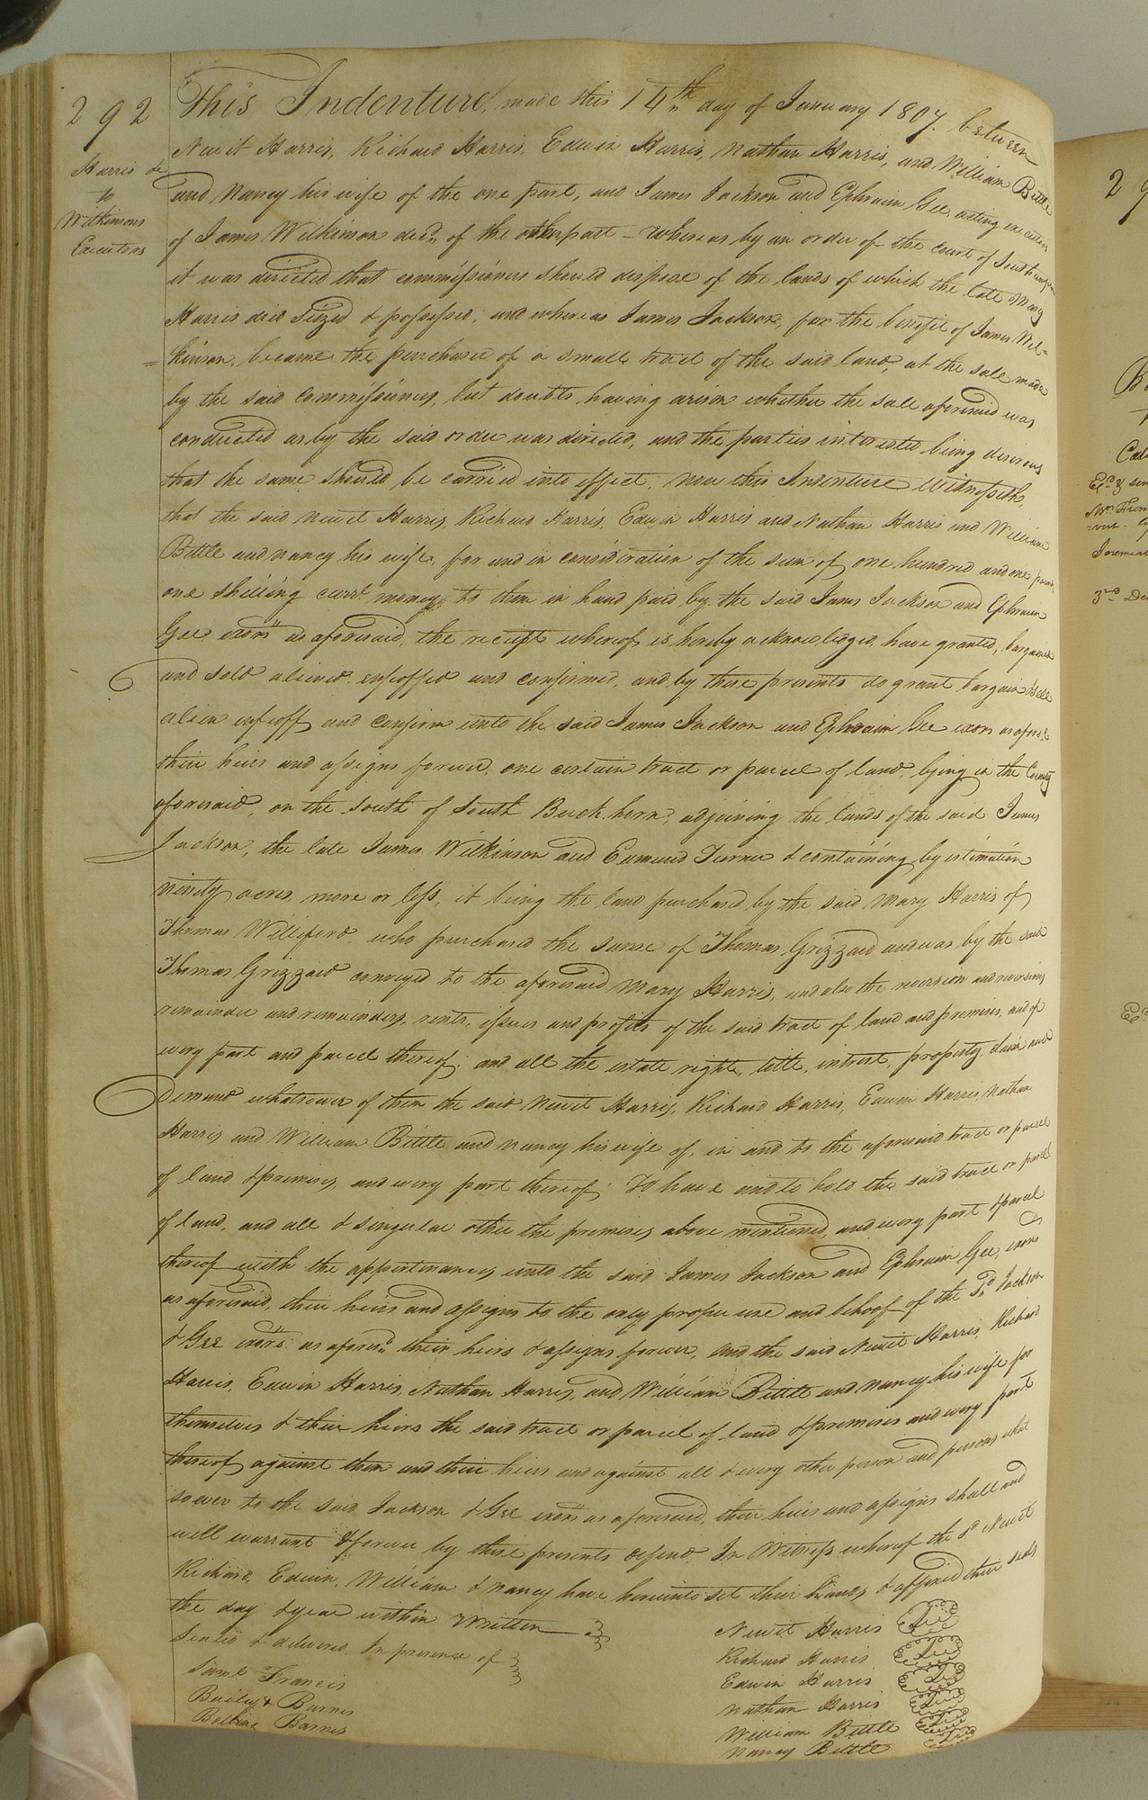 292
Harris &c
to
Wilkinsons
Executors
This Indenture, made this 14th day of January 1807. between
Newit Harris, Richard Harris, Edwin Harris, Nathan Harris, and William Bittle
and Nancy his wife of the one part, and James Jackson and Ephraim Gee, acting executors
of James Wilkinson decd. of the other part – whereas by an order of the court of Southampton
it was directed that commissioners should dispose of the lands of which the late Mary
Harris died Siezed & possessed; and whereas James Jackson, for the benefit of James Wil-
=kinson, became the purchaser of a small tract of the said land, at the sale made
by the said commissioners, but doubts having arisen whether the sale aforesaid was
conducted as by the said order was directed, and the parties interested being desirous
that the same should be carried into effect. Now this Indenture Witnesseth,
that the said Newit Harris, Richard Harris, Edwin Harris and Nathan Harris and William
Bittle and Nancy his wife, for and in consideration of the sum of one hundred and one pounds
one shilling currt. money, to them in hand paid by the said James Jackson and Ephraim
Gee exors as aforesaid, the receipt whereof is hereby acknowledged, have granted, bargained
and sold aliened enfeoffed and confirmed, and by these presents do grant bargain & sell
alien enfeoff and confirm unto the said James Jackson and Ephraim Gee exors as aforesd
their heirs and assigns forever, one certain tract or parcel of land, lying in the County
aforesaid, on the south of South Buck horn, adjoining the lands of the said James
Jackson, the late James Wilkinson and Edmund Turner & containing by estimation
ninety acres, more or less, it being the land purchased by the said Mary Harris of
Thomas Williford who purchased the same of Thomas Grizzard and was by the said
Thomas Grizzard conveyed to the aforesaid Mary Harris, and also the reversion and reversions
remainder and remainders, rents, issues and profits of the said tract of land and premises, and of
every part and parcel thereof; and all the estate right, title, intrest, property, claim and
Demand whatsoever of them the said Newit Harris, Richard Harris, Edwin Harris, Nathan
Harris and William Bittle and Nancy his wife of, in and to the aforesaid tract or parcel
of land & premises, and every part thereof; To have and to hold the said tract or parcel
of land, and all & singular other the premises above mentioned, and every part & parcel
thereof with the appertenances unto the said James Jackson and Ephraim Gee, exors
as aforesaid, their heirs and assigns to the only proper use and behoof of the Sd Jackson
& Gee exors. as aforesd. their heirs & assigns forever, and the said Newit Harris, Richard
Harris, Edwin Harris, Nathan Harris, and William Bittle and Nancy his wife for
themselves & their heirs the said tract or parcel of land & premises and every part
thereof against them and their heirs and against all & every other person and persons what
soever to the said Jackson & Gee exors as aforesaid, their heirs and assigns shall and
will warrant & forever by these presents defend In Witness whereof the sd Newit
Richard, Edwin, William & Nancy have hereunto set their hands & affixed their seals
the day & year within Written
Sealed & delivered In presence of
Saml Francis
Bailey Barnes
Barnes
Newit Harris
Richard Harris
Edwin Harris
Nathan Harris
William Bittle
Nancy Bittle